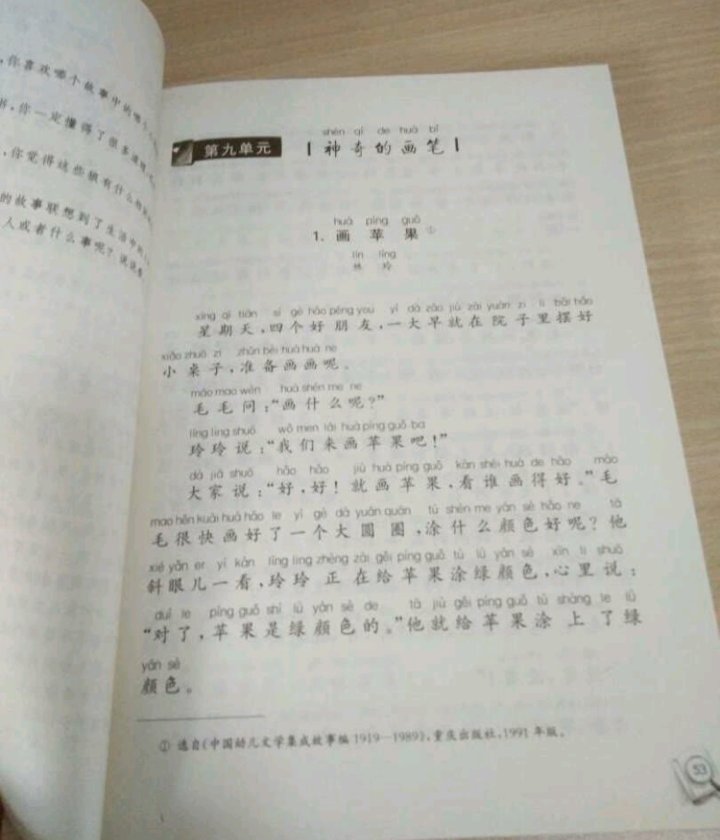 ，你喜欢哪个故事中的哪个
书，你一定懂得了很多道理
，你觉得这些狼有什么
的故事联想到了生活中的
人或者什么事呢？说说看
第九单元
shén qí de huà bǐ
神奇的画笔
huà píng guǒ
1. 画 苹 果①
lín líng
林 玲
xīng qī tiān sì gè hǎo péng you yí dà zǎo jiù zài yuàn zi li bǎi hǎo
星期天，四个好朋友，一大早就在院子里摆好
xiǎo zhuō zi zhǔn bèi huà huà ne
小桌子，准备画画呢。
máo mao wèn huà shén me ne
毛毛问：“画什么呢？”
líng ling shuō wǒ men lái huà píng guǒ ba
玲玲说：“我们来画苹果吧！”
dà jiā shuō hǎo hǎo jiù huà píng guǒ kàn shéi huà de hǎo máo
大家说：“好，好！就画苹果，看谁画得好。”毛
mao hěn kuài huà hǎo le yí gè dà yuán quān tú shén me yán sè hǎo ne tā
毛很快画好了一个大圆圈，涂什么颜色好呢？他
xié yǎn er yí kàn líng ling zhèng zài gěi píng guǒ tú lǜ yán sè xīn li shuō
斜眼儿一看，玲玲正在给苹果涂绿颜色，心里说：
duì le píng guǒ shì lǜ yán sè de tā jiù gěi píng guǒ tú shàng le lǜ
“对了，苹果是绿颜色的。”他就给苹果涂上了绿
yán sè
颜色。
① 选自《中国幼儿文学集成故事编1919—1989》，重庆出版社，1991年版。
53